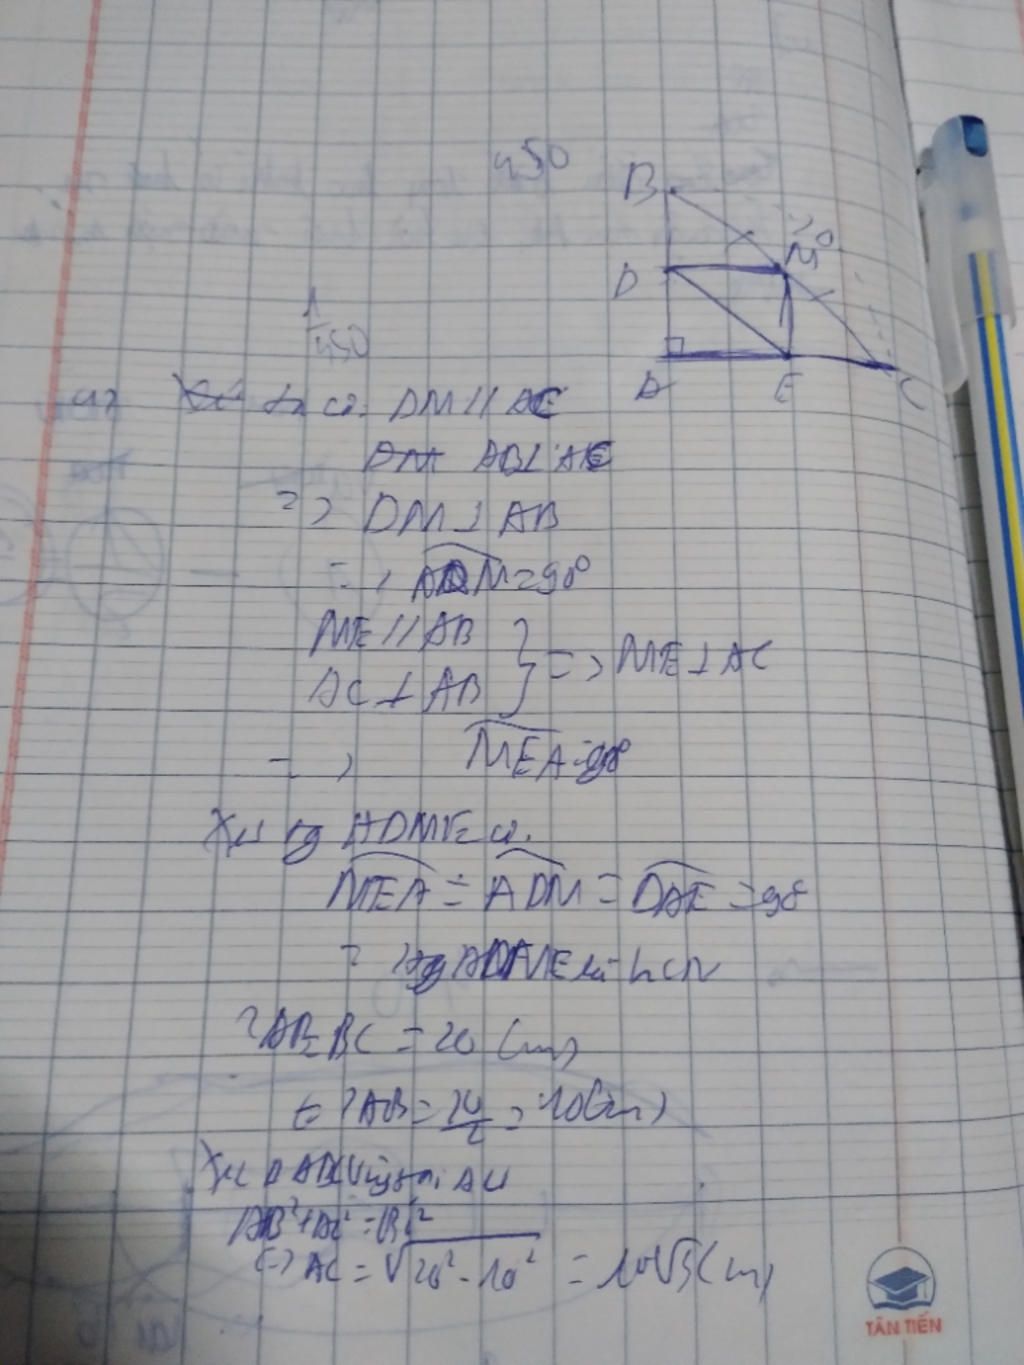 450
B
20
D
M
A
E
C
1
450
ta có. DM // AC
DM AB ⊥ AC
=> DM ⊥ AB
=> ADM = 90°
ME // AB
AC ⊥ AB } => ME ⊥ AC
=> MEA = 90°
Xét tg ADME có.
MEA = ADM = DAE = 90°
=> tg ADME là hCN
2AB = BC = 20 (cm)
<=> AB = 20/2 = 10 (cm)
Xét Δ ABC vuông tại A có
AB² + AC² = BC²
<=> AC = √20² - 10² = 10√3 (cm)
TÂN TIẾN